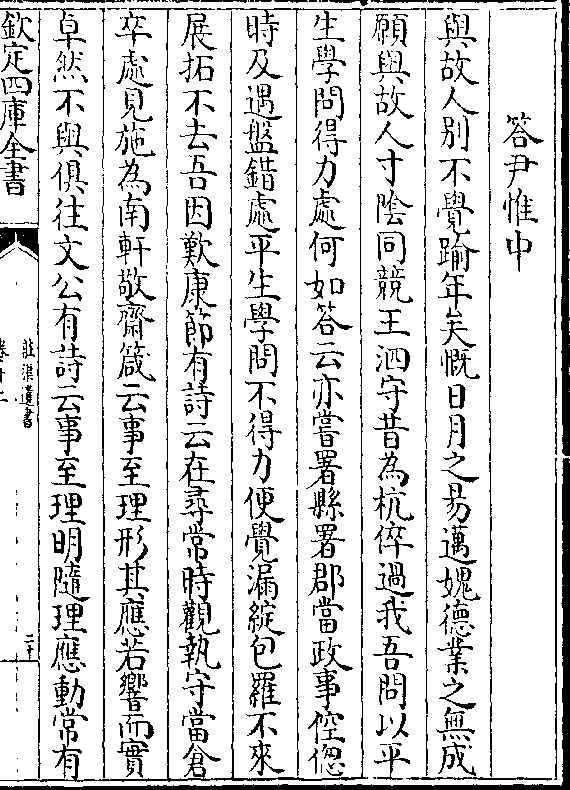 答尹惟中
與故人别不覺踰年矣慨日月之易邁媿德業之無成
願與故人寸陰同競王泗守昔為杭倅過我吾問以平
生學問得力處何如答云亦嘗署縣署郡當政事倥偬
時及遇盤錯處平生學問不得力便覺漏綻包羅不來
展拓不去吾因歎康節有詩云在尋常時觀執守當倉
卒處見施為南軒敬齋箴云事至理形其應若響而實
卓然不與俱往文公有詩云事至理明隨理應動常有
欽定四庫全書
莊渠遺書
卷十二
二十